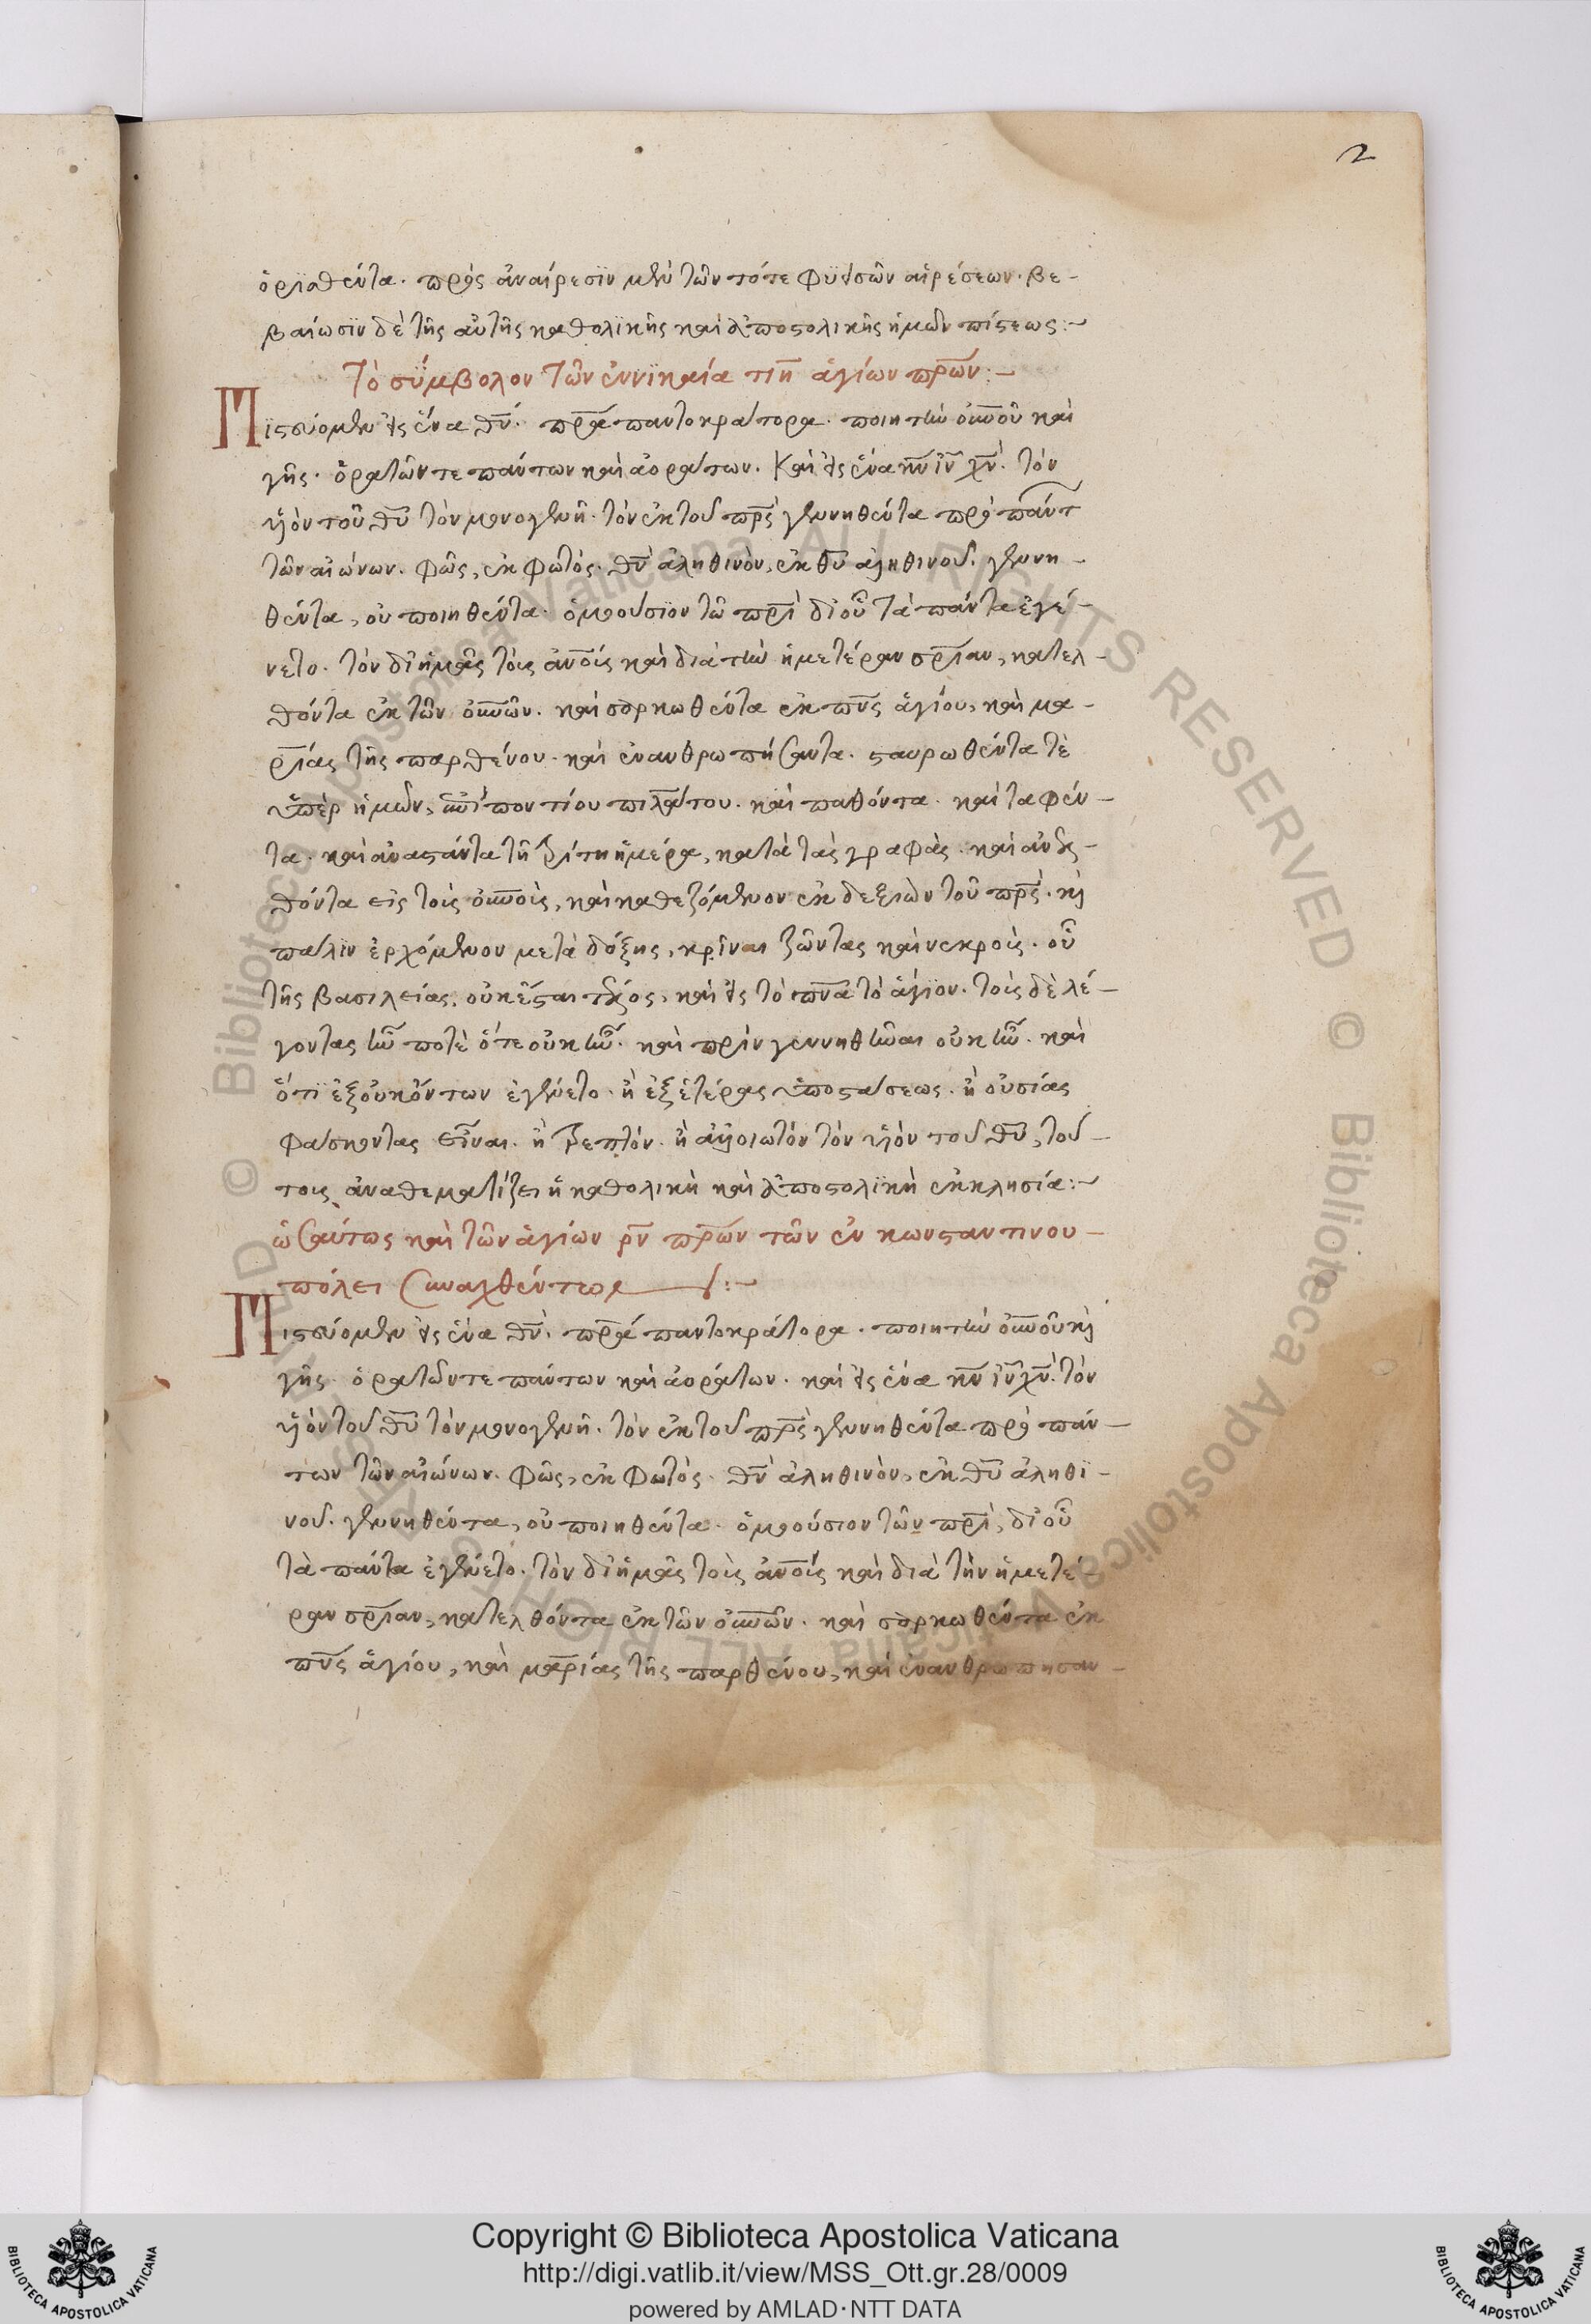 2
ὁρισθέντα. πρὸς ἀναίρεσϊν μὲν τῶν τότε φϋεισῶν αἱρέσεων. βε-
βαίωσϊν δὲ τῆς αὐτῆς καθολϊκῆς καὶ ἀποστολικῆς ἡμῶν πίστεως:~
Τὸ σύμβολον τῶν ἐν νϊκαία τιη ἁγίων πρων:~
Πϊστεύομεν εἰς ἕνα θν. πρα παντοκράτορα. ποιητὴν οὐνοῦ καὶ
γῆς. ὁρατῶν τε πάντων καὶ ἀοράτων. Καὶ εἰς ἕνα κν ιν χν. τὸν
υἱὸν τοῦ θυ τὸν μονογενῆ. τὸν ἐκ τοῦ πρς γεννηθέντα πρὸ πάντ
τῶν αἰώνων. φῶς, ἐκ φωτός. θν ἀληθινὸν, ἐκ θυ ἀληθινοῦ. γεννη-
θέντα, οὐ ποιηθέντα. ὁμοούσϊον τῶ πρι δι οὗ τὰ πάντα ἐγέ-
νετο. τὸν δι ἡμᾶς τοὺς ἀνους καὶ διὰ τὴν ἡμετέραν σριαν, κατελ-
θόντα ἐκ τῶν οὐνῶν. καὶ σαρκωθέντα ἐκ πνς ἁγίου, καὶ μα-
ρίας τῆς παρθένου. καὶ ἐνανθρωπήσαντα. σταυρωθέντα τὲ
ὑπὲρ ἡμῶν, ἐπὶ ποντίου πιλάτου. καὶ παθόντα. καὶ ταφέν-
τα. καὶ ἀναστάντα τῆ τρίτη ἡμέρα, κατὰ τὰς γραφὰς. καὶ ἀνελ-
θόντα εἰς τοὺς οὐνοὺς, καὶ καθεζόμενον ἐκ δεξιῶν τοῦ πρς. κ
πάλϊν ἐρχόμενον μετὰ δόξης, κρῖναι ζῶντας καὶ νεκροὺς. οὗ
τῆς βασιλείας, οὐκ ἔσται τέλος, καὶ εἰς τὸ πνα τὸ ἅγϊον. τοὺς δὲ λέ-
γοντας ἦν ποτὲ ὅτε οὐκ ἦν. καὶ πρὶν γεννηθῆναι οὐκ ἦν. καὶ
ὅτϊ ἐξ οὐκ ὄντων ἐγένετο. ἢ ἐξ ἑτέρας ὑποστάσεως. ἢ οὐσίας
φάσκοντας εἶναι. ἢ τρεπτὸν. ἢ ἀλλοιωτὸν τὸν υἱὸν τοῦ θυ, τού-
τους ἀναθεματίζει ἡ καθολικὴ καὶ ἀποστολϊκὴ ἐκκλησία:~
ὡσαύτως καὶ τῶν ἁγίων ρν πρων τῶν ἐν κωνσταντινου-
πόλει συναχθέντων:~
Πιστεύομεν εἰς ἕνα θν. πρα παντοκράτορα. ποιητὴν οὐνοῦ κ
γῆς. ὁρατῶν τε πάντων καὶ ἀοράτων. καὶ εἰς ἕνα κν ιν χν. τὸν
υἱὸν τοῦ θυ τὸν μονογενῆ. τὸν ἐκ τοῦ πρς γεννηθέντα πρὸ πάν-
των τῶν αἰώνων. φῶς, ἐκ φωτὸς. θν ἀληθινὸν, ἐκ θυ ἀληθϊ-
νοῦ. γεννηθέντα, οὐ ποιηθέντα. ὁμοούσιον τῶν πρι, δι οὗ
τὰ πάντα ἐγένετο. τὸν δι ἡμᾶς τοὺς ἀνους καὶ διὰ τὴν ἡμετέ-
ραν σριαν, κατελθόντα ἐκ τῶν οὐνῶν. καὶ σαρκωθέντα ἐκ
πνς ἁγίου, καὶ μαρίας τῆς παρθένου, καὶ ἐνανθρωπησαν-
© Biblioteca Apostolica Vaticana ALL RIGHTS RESERVED © Biblioteca Apostolica Vaticana ALL RIGHTS RESERVED
Copyright © Biblioteca Apostolica Vaticana
http://digi.vatlib.it/view/MSS_Ott.gr.28/0009
powered by AMLAD·NTT DATA
BIBLIOTECA APOSTOLICA VATICANA
BIBLIOTECA APOSTOLICA VATICANA